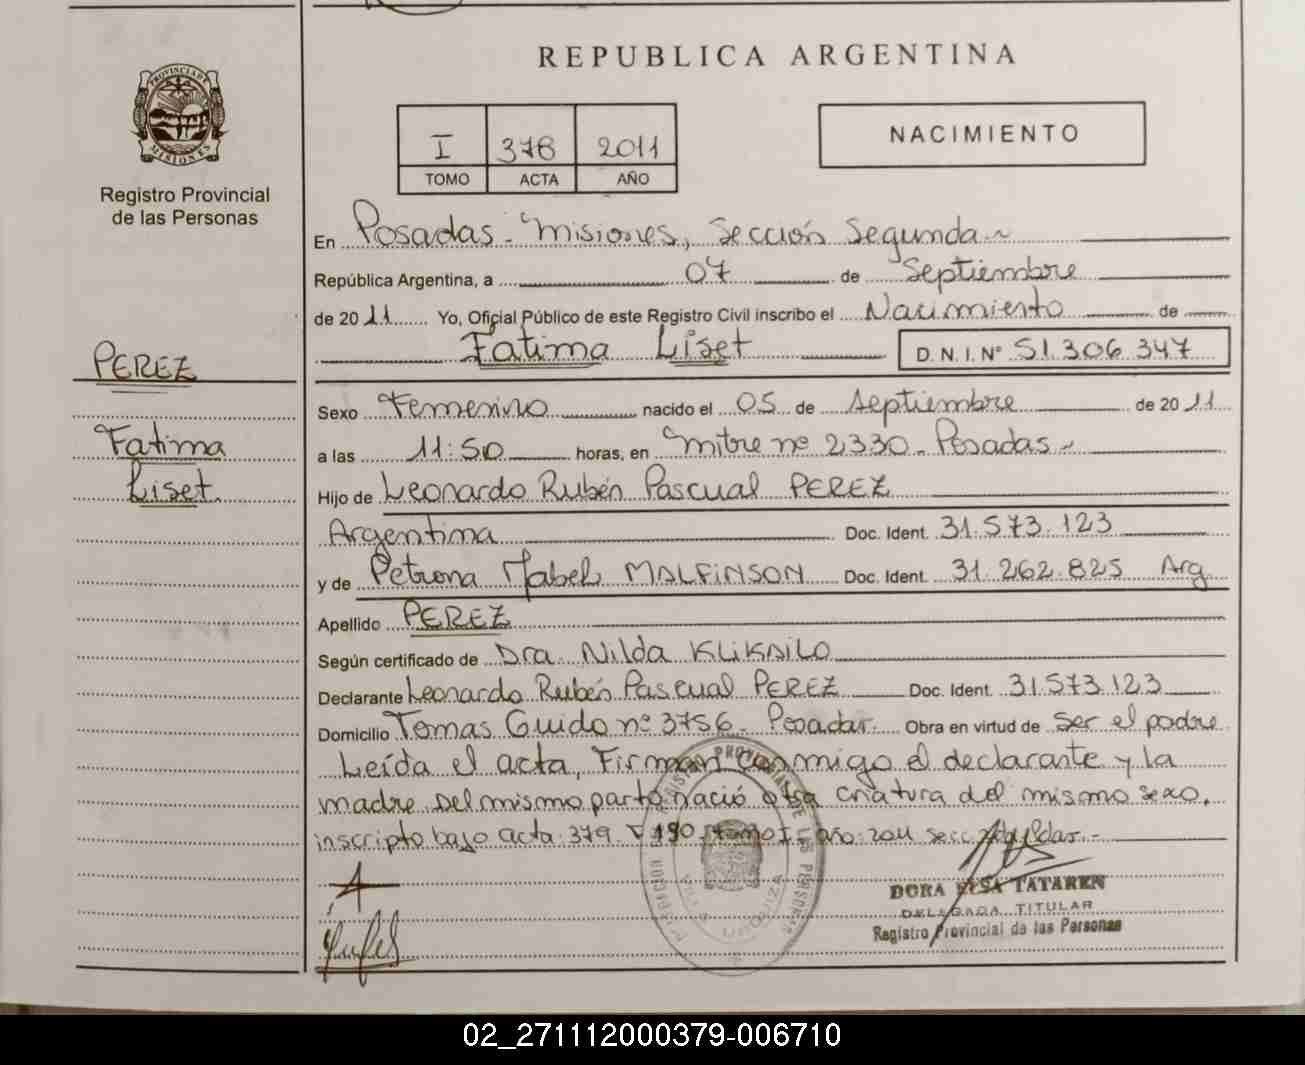 REPUBLICA ARGENTINA
PROVINCIA DE
MISIONES
Registro Provincial
de las Personas
I 378 2011
TOMO ACTA AÑO
NACIMIENTO
En Posadas - Misiones, Sección Segunda
República Argentina, a 07 de Septiembre
de 2011 Yo, Oficial Público de este Registro Civil inscribo el Nacimiento de
Fatima Liset D.N.I. Nº 51.306.347
PEREZ
Fatima
Liset
Sexo Femenino nacido el 05 de septiembre de 2011
a las 11:50 horas, en Mitre nº 2330 - Posadas -
Hijo de Leonardo Rubén Pascual PEREZ
Argentina Doc. Ident. 31.573.123
y de Petrona Mabel MALFINSON Doc. Ident. 31.262.825 Arg.
Apellido PEREZ
Según certificado de Dra. Nilda
Declarante Leonardo Rubén Pascual PEREZ Doc. Ident. 31.573.123
Domicilio Tomas Guido nº 3756. Posadas. Obra en virtud de ser el padre
Leída el acta, Firman conmigo el declarante y la
madre. Del mismo parto nació otra criatura del mismo sexo,
inscripto bajo acta: 379. tomo I. año: 2011
DORA ELSA TATAREN
DELEGADA TITULAR
Registro Provincial de las Personas
02_271112000379-006710